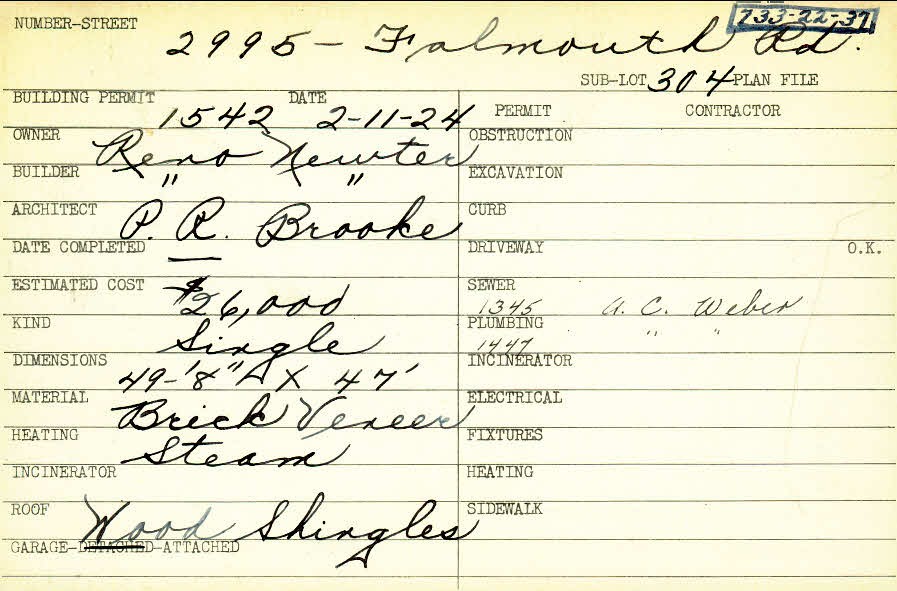 733-22-37
NUMBER-STREET
2995 - Falmouth Rd.
SUB-LOT 304 PLAN FILE
BUILDING PERMIT DATE
1542 2-11-24
PERMIT CONTRACTOR
OWNER Reno Newter
OBSTRUCTION
BUILDER " "
EXCAVATION
ARCHITECT P. R. Brooke
CURB
DATE COMPLETED —
DRIVEWAY O.K.
ESTIMATED COST $26,000
SEWER
1345 A. C. Weber
KIND Single
PLUMBING " "
1447
DIMENSIONS 49-'8" X 47'
INCINERATOR
MATERIAL Brick Veneer
ELECTRICAL
HEATING Steam
FIXTURES
INCINERATOR
HEATING
ROOF Wood Shingles
SIDEWALK
GARAGE-DETACHED-ATTACHED